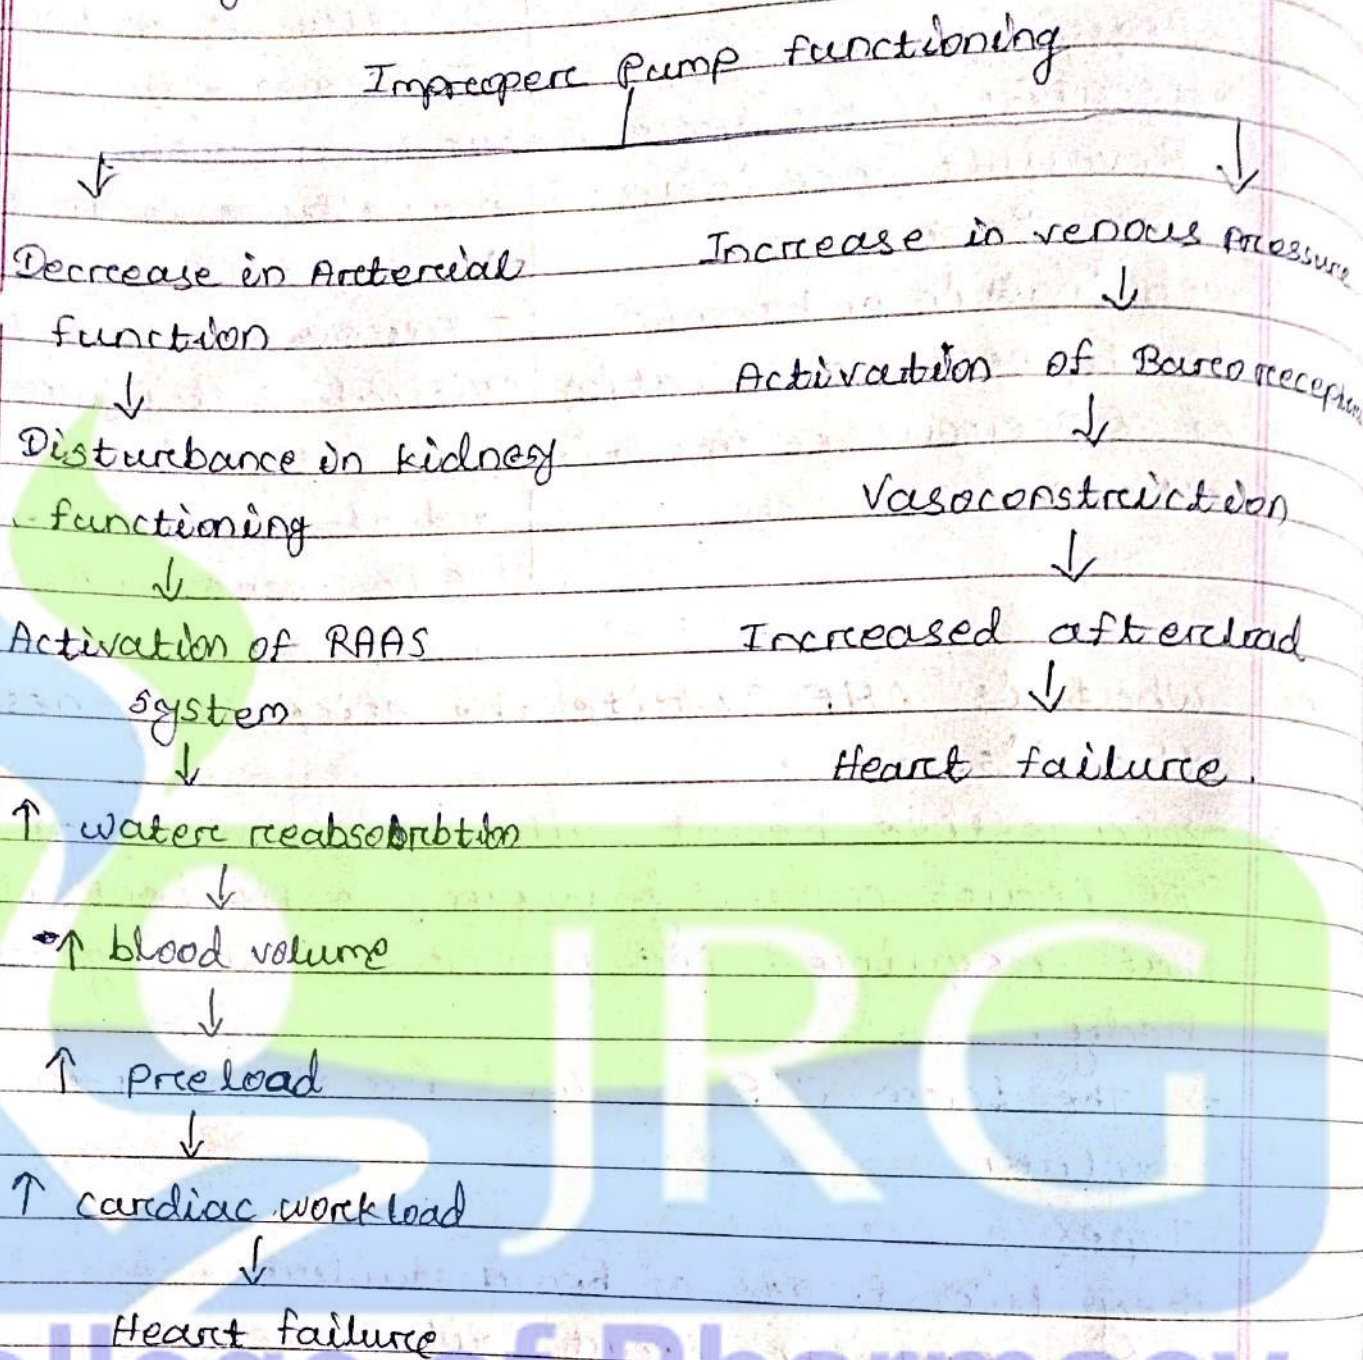 Improper Pump functioning
Decrease in Arterial
function
↓
Disturbance in kidney
functioning
↓
Activation of RAAS
system
↓
↑ water reabsorbtion
↓
↑ blood volume
↓
↑ preload
↓
↑ cardiac workload
↓
Heart failure
Increase in venous pressure
↓
Activation of Baroreceptor
↓
Vasoconstriction
↓
Increased afterload
↓
Heart failure.
JRG
College of Pharmacy